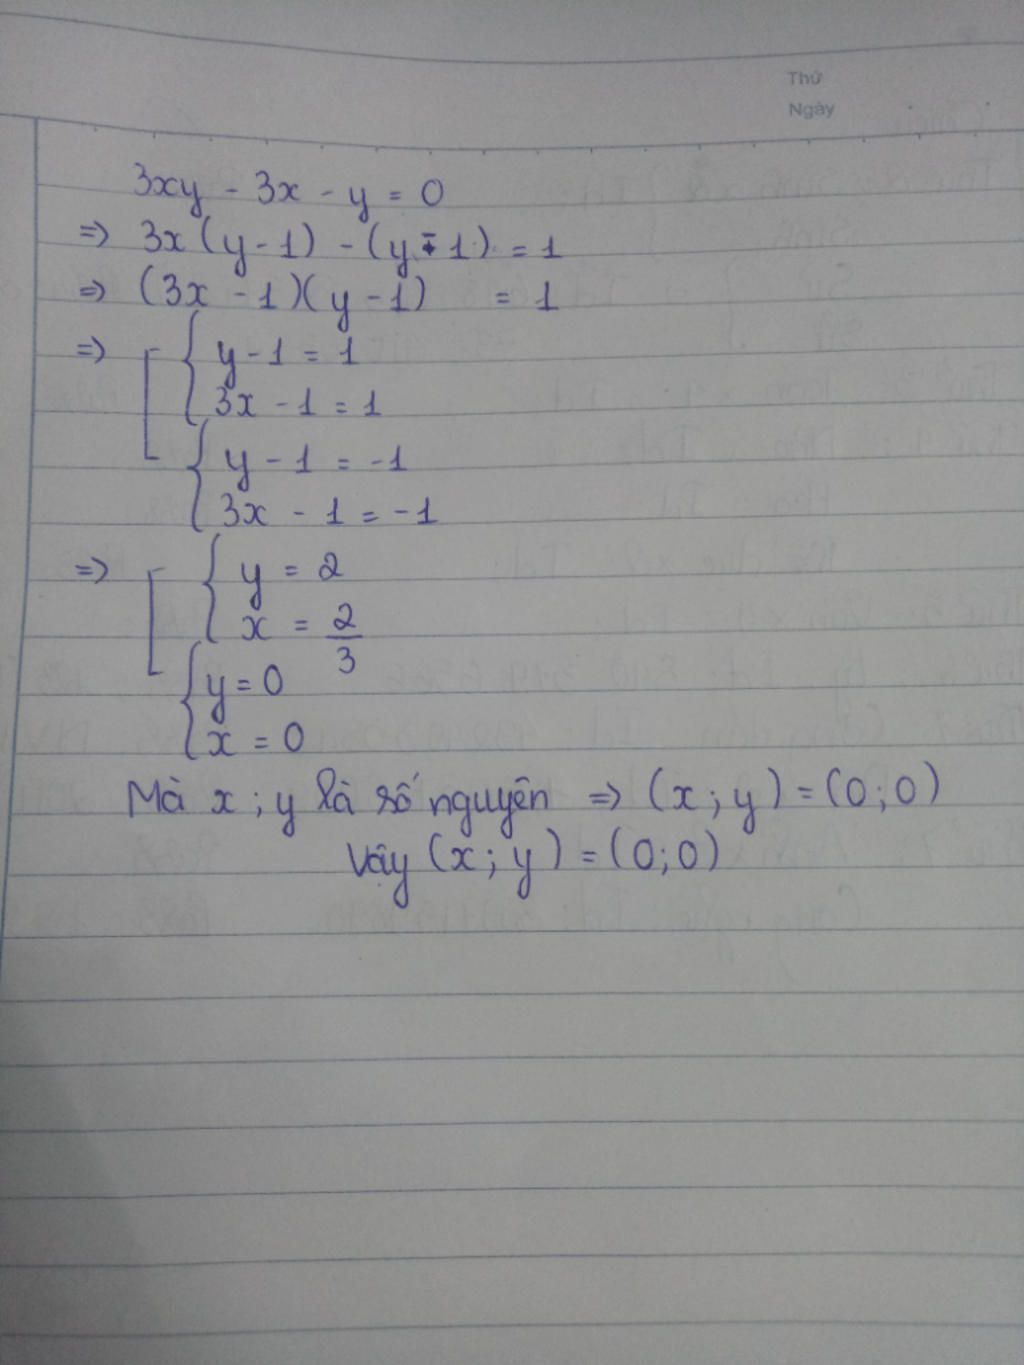 Thứ
Ngày
3xy - 3x - y = 0
=> 3x(y-1) - (y-1) = 1
=> (3x - 1)(y - 1) = 1
=> [ { y - 1 = 1
3x - 1 = 1
{ y - 1 = -1
3x - 1 = -1
=> [ { y = 2
x = 2/3
{ y = 0
x = 0
Mà x ; y là số nguyên => (x ; y) = (0 ; 0)
Vậy (x ; y) = (0 ; 0)